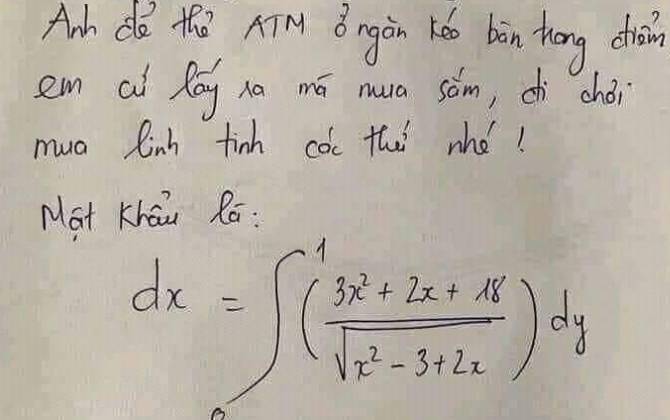 Anh để thẻ ATM ở ngăn kéo bàn trang điểm
em cứ lấy ra mà mua sắm, đi chơi
mua linh tinh các thứ nhé !
Mật khẩu là:
dx = ∫₀¹ ( (3x² + 2x + 18) / √(x² - 3 + 2x) ) dy